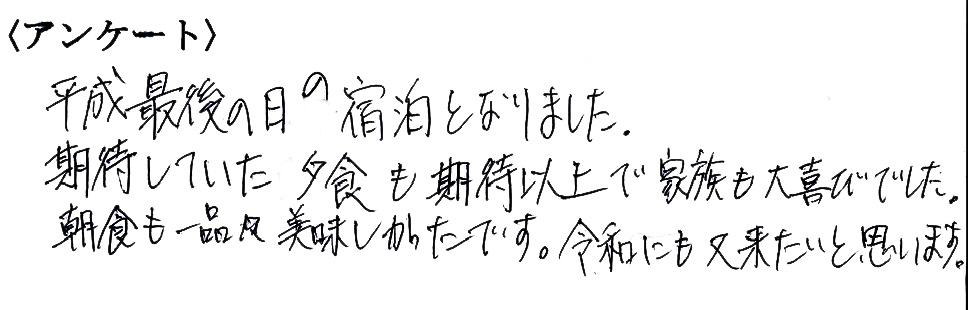 〈アンケート〉
平成最後の日の宿泊となりました.
期待していた夕食も期待以上で家族も大喜びでした.
朝食も一品々美味しかったです。令和にも又来たいと思います。